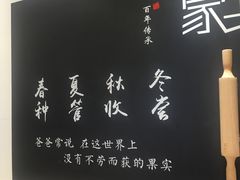 百年传承
春种
夏管
秋收
冬尝
爸爸常说 在这世界上
没有不劳而获的果实